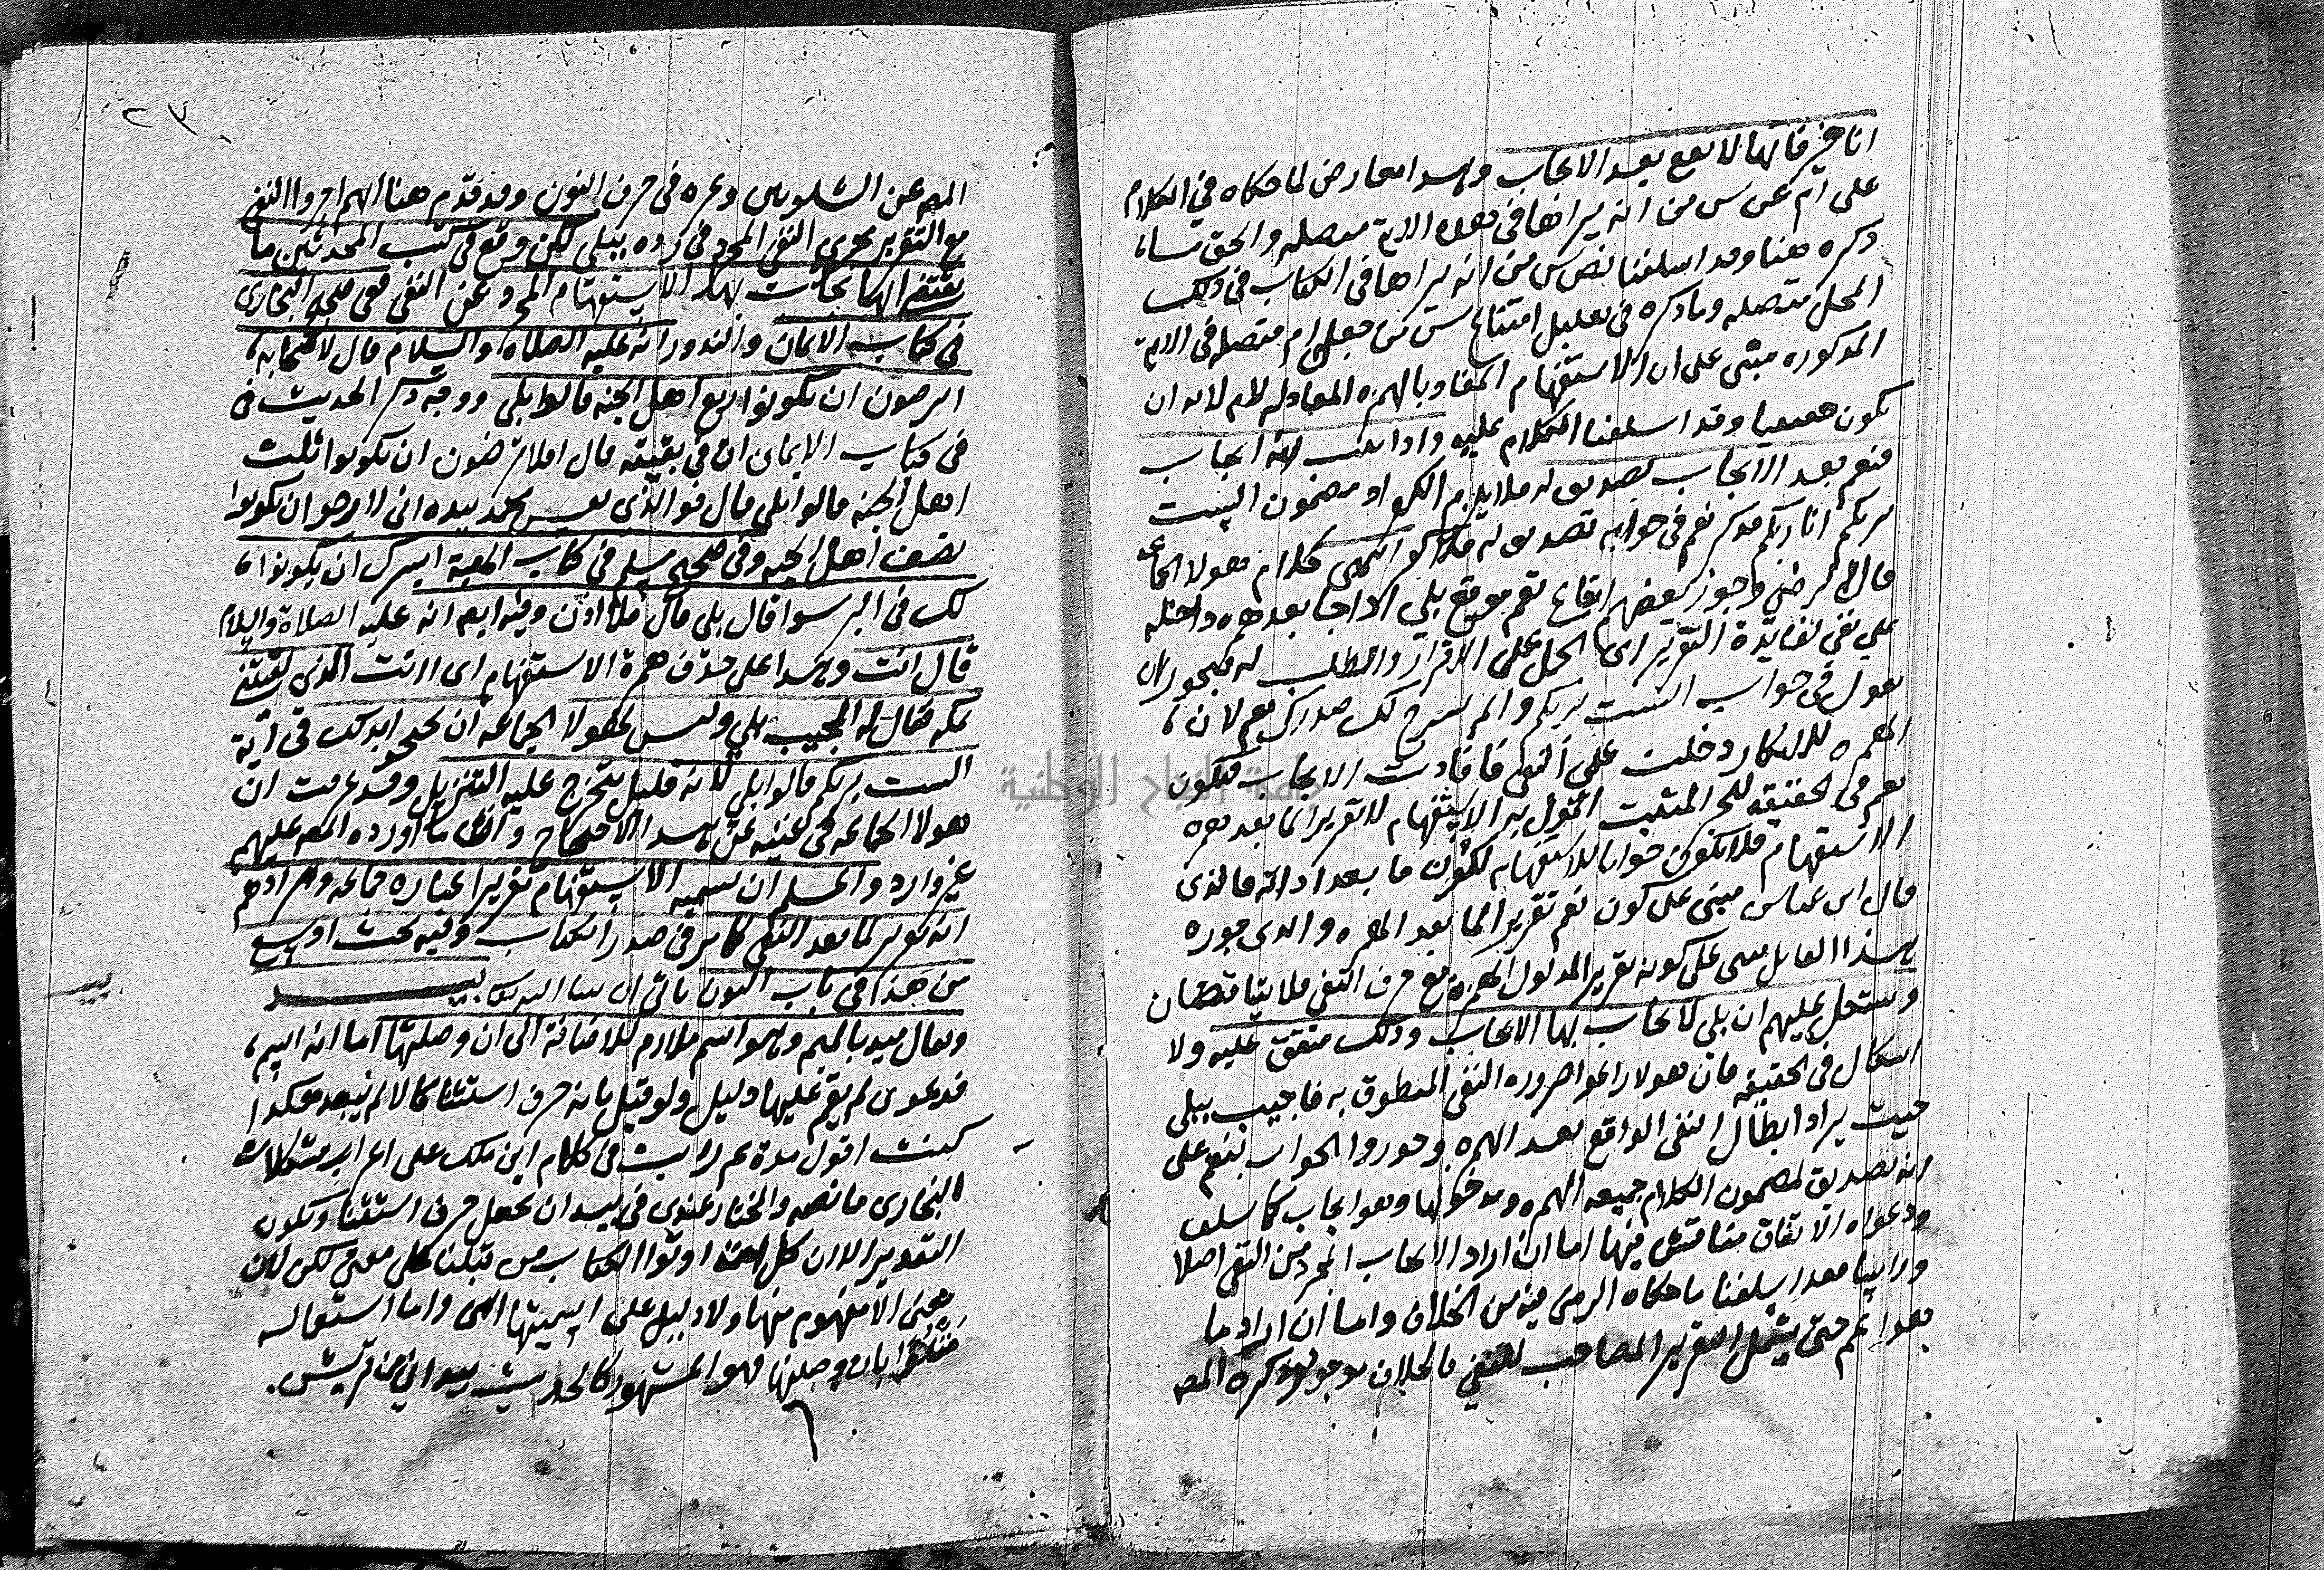 انا خير فانها لا تقع بعد الايجاب وهذا معارض لما حكاه في الكلام
على ام عن س من انه يراها في هذه الاية متصله والحق
ذكره هنا وقد اسلفنا نص س من انه يراها في الكتاب في ذلك
المحل متصله وما ذكره في تعليل امتناع س من جعل ام متصله في الاية
المذكوره مبني على ان الاستفهام المفاد بالهمزه المعادله لام لابد ان
يكون حقيقيا وقد اسلفنا الكلام عليه واذا ثبت لانه ايجاب
فنعم بعد الايجاب تصديق له فلا يلزم الكفر اذ مضمون الست
بربكم انا ربكم فنعم في جوابه تصديق له انتهى كلام هولا الجماعه
قال الرضي وجوز بعضهم ايقاع نعم موقع بلى اذا جا بعد همزه داخله
على نفي لفايدة التقرير اي الحمل على الاقرار والطلب له فيجوز ان
يقول في جواب الست بربكم والم نشرح لك صدرك نعم لان
الهمزه للانكار دخلت على النفي فافادت الايجاب فتكون
نعم في الحقيقه للخبر المثبت المؤول به الاستفهام لا تقريرا لما بعد همزه
الاستفهام فلا تكون جوابا للاستفهام لكون ما بعد اداته فالذي
قال ابن عباس مبني على كون نعم تقريرا لما بعد الهمزه والذي جوزه
هذا القايل مبني على كونه تقريرا لمدلول الهمزه مع حرف النفي فلا يتناقضان
ويشكل عليهم ان بلى لا يجاب بها الايجاب وذلك متفق عليه ولا
اشكال في الحقيقه فان هولا راعوا صوره النفي المنطوق به فاجيب ببلى
حيث يراد ابطال النفي الواقع بعد الهمزه وجوزوا الجواب بنعم على
انه تصديق لمضمون الكلام جميعه الهمزه ومدخولها وهو ايجاب كما سلف
ودعواه الاتفاق مناقش فيها اما ان اراد الايجاب المجرد من النفي اصلا
وراسا فقد اسلفنا ما حكاه الرضي فيه من الخلاف واما ان اراد ما
هو اعم حتى يشمل التقرير المصاحب للنفي فالخلاف موجود ذكره المص
٢٣
المص عن الشلوبين وغيره في حرف النون وقد قدم هنا انهم اجروا النفي
مع التقرير مجرى النفي المجرد في رده ببلى لكن وقع في كتب المحدثين ما
يقتضي انها يجاب بها الاستفهام المجرد عن النفي ففي صحيح البخاري
في كتاب الايمان والنذور انه عليه الصلاه والسلام قال لاصحابه
اترضون ان تكونوا ربع اهل الجنه قالوا بلى ووجه ذكر الحديث في
في كتاب الايمان ان في بقيته قال افلا ترضون ان تكونوا ثلث
اهل الجنه قالوا بلى قال فوالذي نفس محمد بيده اني لارجو ان تكونوا
نصف اهل الجنه وفي صحيح مسلم في كتاب الهبة ايسرك ان يكونوا
لك في البر سوا قال بلى قال فلا اذن وفيه ايضا انه عليه الصلاة والسلام
قال انت وهذا على حذف همزة الاستفهام اي اانت الذي لقيتني
بمكه فقال له المجيب بلى وليس لهولا الجماعه ان يحتجوا بذلك في آية
الست بربكم قالوا بلى لانه قليل فلا يتخرج عليه التنزيل وقد عرفت ان
هولا الجماعه في غنيه عن هذا الاحتجاج وان ما اورده المص عليهم
غير وارد واعلم ان تسميه الاستفهام تقريرا عباره جماعه ومرادهم
انه تقرير لما بعد النفي كما مر في صدر الكتاب وفيه بحث اوسع
من هذا في باب النون ياتي ان شا الله تعالى بيـــــد
ويقال ميد بالميم وهو اسم ملازم للاضافة الى ان وصلتها اما انه اسم
فدعوى لم يقم عليها دليل ولو قيل بانه حرف استثنا كالا لم يبعد هكذا
كنت اقول مدة ثم رايت في كلام ابن مالك على اعراب مشكلات
البخاري ما نصه والمختار عندي في بيد ان تجعل حرف استثنا ويكون
التقدير الا ان كل امة اوتوا الكتاب من قبلنا على معنى لكن لان
معنى الا مفهوم منها ولا دليل على اسميتها انتهى واما استعماله
متلوا بان وصلتها فهو المشهور كالحديث بيد اني من قريش
بيد
جامعة النجاح الوطنية